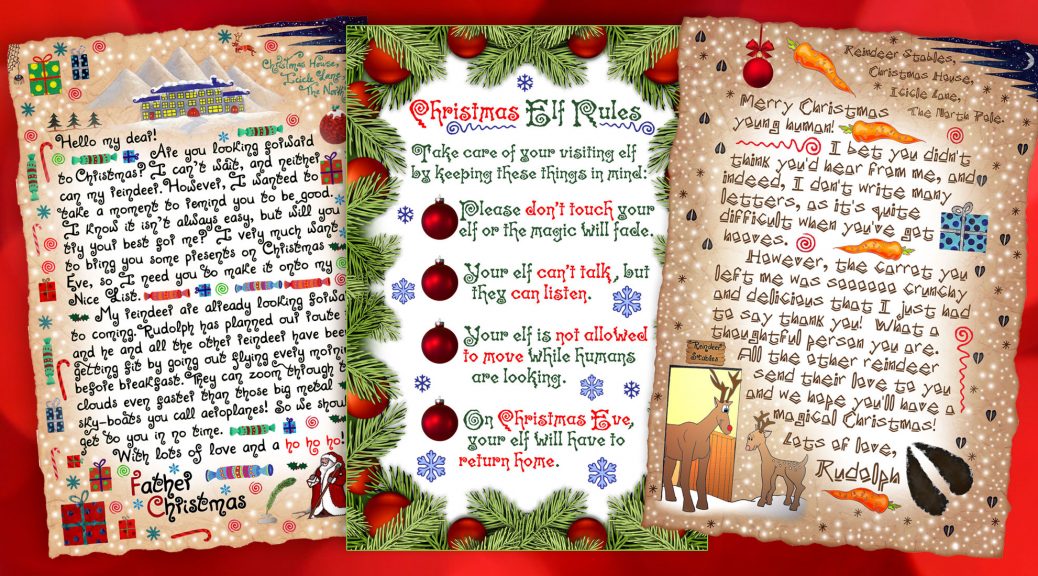 Christmas House,
Icicle Lane,
The North
Hello my dear!
Are you looking forward
to Christmas? I can't wait, and neither
can my reindeer. However, I wanted to
take a moment to remind you to be good.
I know it isn't always easy, but will you
try your best for me? I very much want
to bring you some presents on Christmas
Eve, so I need you to make it onto my
Nice List.
My reindeer are already looking forward
to coming. Rudolph has planned our route
and he and all the other reindeer have been
getting fit by going out flying every morning
before breakfast. They can zoom through t
clouds even faster than those big metal
sky-boats you call aeroplanes! So we shou
get to you in no time.
With lots of love and a ho ho ho!
Father
Christmas
Christmas Elf Rules
Take care of your visiting elf
by keeping these things in mind:
Please don't touch your
elf or the magic will fade.
Your elf can't talk, but
they can listen.
Your elf is not allowed
to move while humans
are looking.
On Christmas Eve,
your elf will have to
return home.
Reindeer Stables,
Christmas House,
Icicle Lane,
The North Pole.
Merry Christmas
young human!
I bet you didn't
think you'd hear from me, and
indeed, I don't write many
letters, as it's quite
difficult when you've got
hooves.
However, the carrot you
left me was soooooo crunchy
and delicious that I just had
to say thank you! What a
thoughtful person you are.
All the other reindeer
send their love to you
and we hope you'll have a
magical Christmas!
Lots of love,
Rudolph
Reindeer
Stables